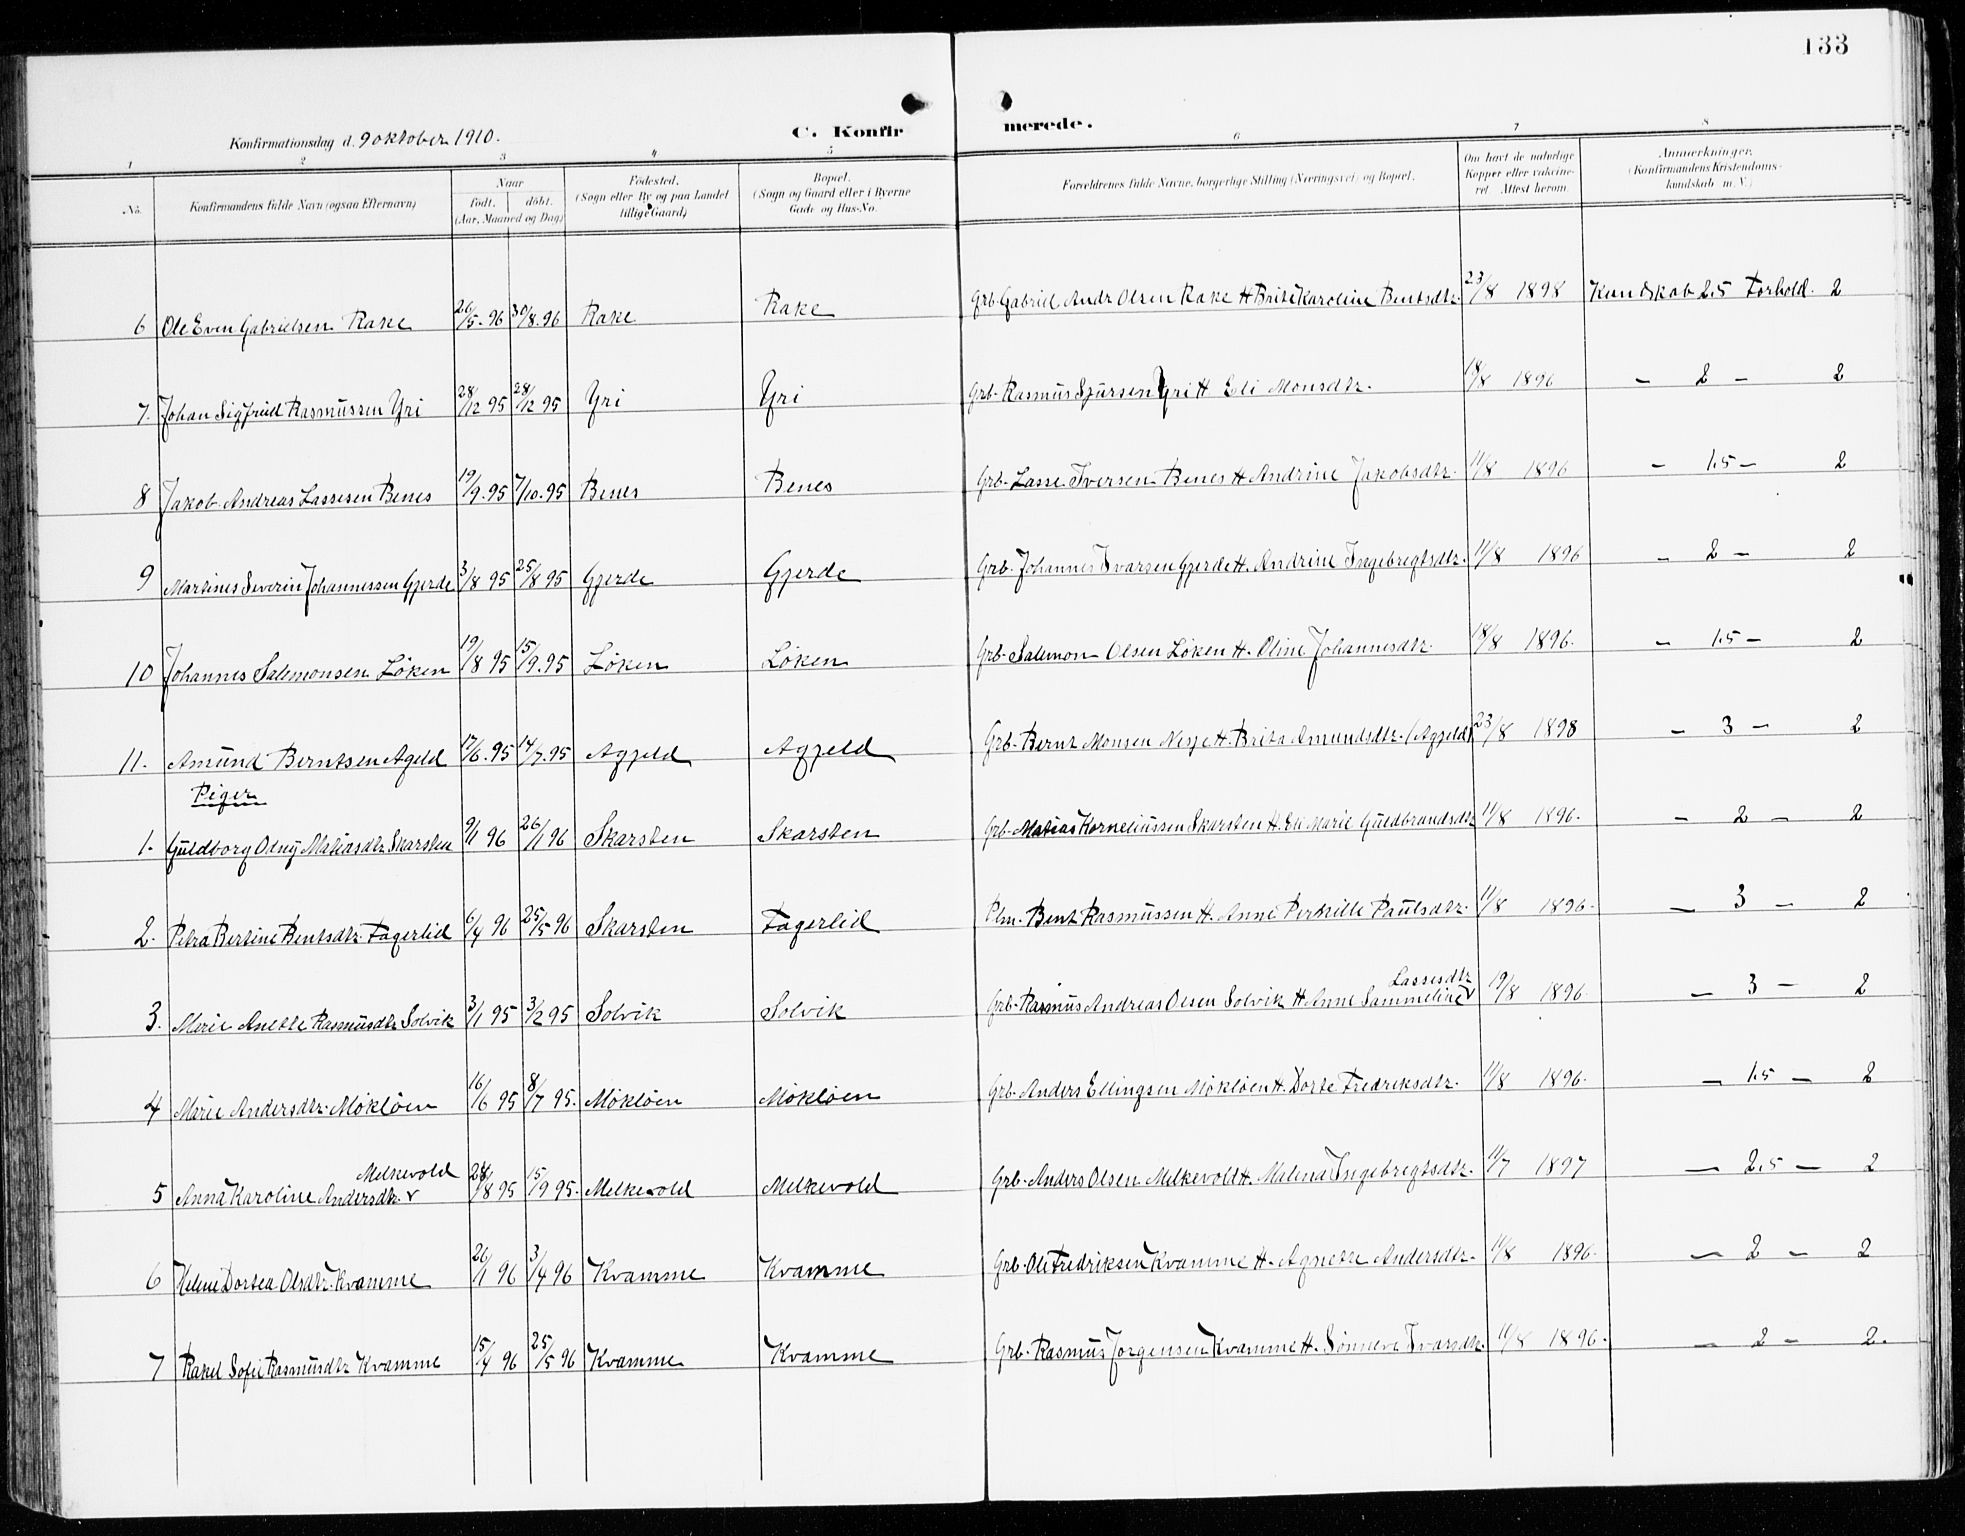 133
Konfirmationsdag d. 9 oktober 1910.
C. Konfirmerede.
1 2 3 4 5 6 7 8
No. Konfirmandens fulde Navn (ogsaa Efternavn) Naar født. døbt. (Aar, Maaned og Dag) Fødested. (Sogn eller By og paa Landet tillige Gaard) Bopæl. (Sogn og Gaard eller i Byerne Gade og Hus-No. Forældrenes fulde Navne, borgerlige Stilling (Næringsvei) og Bopæl. Om havt de naturlige Kopper eller vakcineret. Attest herom. Anmærkninger. (Konfirmandens Kristendomskundskab m. V.)
6 Ole Even Gabrielsen Rake 26/5. 96 30/8. 96 Rake Rake Grb. Gabriel Andr Olsen Rake H Brite Karoline Bentsdtr. 23/8 1898 Kundskab 2.5 Forhold. 2
7. Johan Sigfrid Rasmussen Yri 28/12 95 28/12 95 Yri Yri Grb. Rasmus Sjursen Yri H Eli Monsdtr. 18/8 1896 – 2 – 2
8 Jakob Andreas Lassesen Benes 19/9. 95 7/10. 95 Benes Benes Grb. Lasse Iversen Benes H Andrine Jakobsdtr. 11/8 1896 – 1.5 – 2
9 Martines Severin Johannessen Gjerde 3/8 95 25/8 95 Gjerde Gjerde Grb. Johannes Ivarsen Gjerde H. Andrine Ingebregtsdtr. 11/8 1896 – 2 – 2
10 Johannes Salemonsen Løken 19/8 95 15/9. 95 Løken Løken Grb. Salemon Olsen Løken H. Oline Johannesdtr. 18/8 1896. – 1.5 – 2
11. Amund Berntsen Ageld 17/6. 95 14/7. 95 Agjeld Agjeld Grb. Bernt Monsen Nesje H. Brita Amundsdtr. (Agjeld) 23/8 1898 – 3 – 2
Piger
1. Guldborg Olny Matiasdtr Skarsten 9/1 96 26/1 96 Skarsten Skarsten Grb. Matias Korneliussen Skarsten H. Eli Marie Guldbrandsdtr 11/8 1896. – 2 – 2
2. Petra Bertine Bentsdtr Fagerlid 6/4 96 25/5 96 Skarsten Fagerlid Plm. Bent Rasmussen H. Anne Perkille Paulsdtr. 11/8 1896. – 3 – 2
3. Marie Anette Rasmusdtr Solvik 3/1 95 3/2 95 Solvik Solvik Grb. Rasmus Andreas Olsen Solvik H Anne Sammeline Lassesdtr 19/8 1896. – 3 – 2
4 Marie Andersdtr. Møkløen 16/6 95 8/7 95. Møkløen Møkløen Grb. Anders Ellingsen Møkløen H. Dorte Fredriksdtr. 11/8 1896. – 1.5 – 2
5 Anna Karoline Andersdtr. Melkevold 28/8 95 15/9 95. Melkevold Melkevold Grb. Anders Olsen Melkevold H. Malena Ingebregtsdtr. 11/7 1897 – 2.5 – 2
6 Helene Dortea Olsdtr. Kvamme 26/1 96 3/4 96 Kvamme Kvamme Grb. Ole Fredriksen Kvamme H. Agnethe Andersdtr. 11/8 1896. – 2 – 2
7 Rakel Sofie Rasmusdtr Kvamme 15/4 96 25/5 96 Kvamme Kvamme Grb. Rasmus Jørgensen Kvamme H. Sønneve Ivarsdtr. 11/8 1896. – 2 – 2.